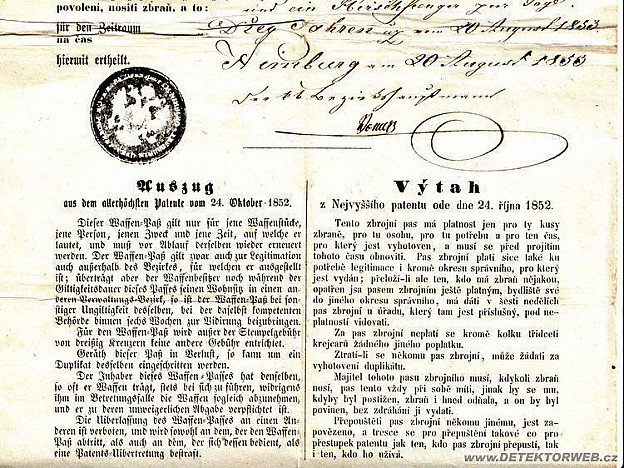 povolení, nositi zbraň, a to:
und ein Hirschfänger zur Jagd
für den Zeitraum
na čas
Drey Jahren vom 20 August 1853
hiermit ertheilt.
am 20 August 1853
Der kk Bezirkshauptmann
Auszug
aus dem allerhöchsten Patente vom 24. Oktober 1852.
Dieser Waffen-Paß gilt nur für jene Waffenstücke,
jene Person, jenen Zweck und jene Zeit, auf welche er
lautet, und muß vor Ablauf derselben wieder erneuert
werden. Der Waffen-Paß gilt zwar zur Legitimation
auch außerhalb des Bezirkes, für welchen er ausgestellt
ist; überträgt aber der Waffenbesitzer noch während der
Giltigkeitsdauer dieses Passes seinen Wohnsitz in einen an-
deren Verwaltungs-Bezirk, so ist der Waffen-Paß bei son-
stiger Ungiltigkeit desselben, bei der daselbst kompetenten
Behörde binnen sechs Wochen zur Vidirung beizubringen.
Für den Waffen-Paß wird außer der Stempelgebühr
von dreißig Kreuzern keine andere Gebühr entrichtet.
Geräth dieser Paß in Verlust, so kann um ein
Duplikat desselben eingeschritten werden.
Der Inhaber dieses Waffen-Passes hat denselben,
so oft er Waffen trägt, stets bei sich zu führen, widrigens
ihm im Betretungsfalle die Waffen sogleich abzunehmen,
und er zu deren unweigerlichen Abgabe verpflichtet ist.
Die Ueberlassung des Waffen-Passes an einen An-
deren ist verboten, und wird sowohl an dem, der den Waffen-
Paß abtritt, als auch an dem, der sich dessen bedient, als
eine Patents-Uibertretung bestraft.
Výtah
z Nejvyššího patentu ode dne 24. října 1852.
Tento zbrojní pas má platnost jen pro ty kusy
zbraně, pro tu osobu, pro tu potřebu a pro ten čas,
pro který jest vyhotoven, a musí se před projitím
tohoto času obnoviti. Pas zbrojní platí sice také ku
potřebě legitimace i kromě okresu správního, pro který
jest vydán; přeloží-li ale ten, kdo má zbraň nějakou,
opatřen jsa pasem zbrojním ještě platným, bydliště své
do jiného okresu správního, má dáti v šesti nedělích
pas zbrojní u úřadu, který tam jest příslušný, pod ne-
platností vidovati.
Za pas zbrojní neplatí se kromě kolku třidceti
krejcarů žádného jiného poplatku.
Ztratí-li se někomu pas zbrojní, může žádati za
vyhotovení duplikátu.
Majitel tohoto pasu zbrojního musí, kdykoli zbraň
nosí, pas tento vždy při sobě míti, jinak by se mu,
kdyby byl postižen, zbraň i hned odňala, a on by byl
povinen, bez zdráhání ji vydati.
Přepouštěti pas zbrojní někomu jinému, jest za-
povězeno, a tresce se pro přepuštění takové co pro
přestupek patentu jak ten, kdo pas zbrojní přepustí, tak
i ten, kdo ho užívá.
www.DETEKTORWEB.cz